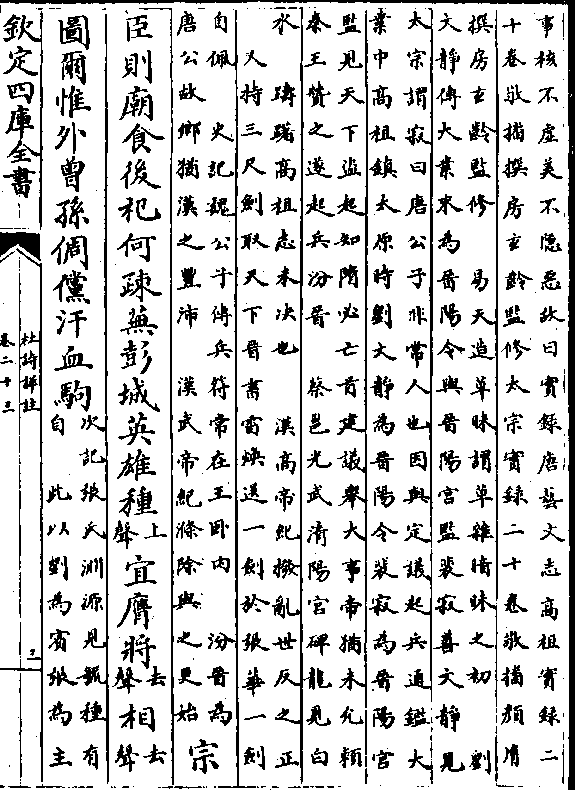 事核不虛美不隱惡故曰實録唐藝文志高祖實録二
十卷敬播撰房玄齡監修太宗實録二十卷敬播顔𦙍
撰房玄齡監修　易天造草昧謂草雜暗昧之初　劉
文靜傳大業末為晉陽令與晉陽宮監裴寂善文靜見
太宗謂寂曰唐公子非常人也因與定議起兵通鑑大
業中高祖鎮太原時劉文靜為晉陽令裴寂為晉陽宮
監見天下盜起知隋必亡首建議舉大事帝猶未允頼
秦王贊之遂起兵汾晉　蔡邕光武濟陽宮碑龍見白
水　躊躇高祖志未決也　漢高帝紀撥亂世反之正
又持三尺劍取天下晉書雷煥送一劍於張華一劍
自佩　史記魏公子傳兵符常在王卧内　汾晉為
唐公故鄉猶漢之豐沛　漢武帝紀滌除與之更始
宗
臣則廟食後祀何疎蕪彭城英雄種上聲宜膺將去聲相去聲
圖爾惟外曾孫倜儻汗血駒
次記張氏淵源見種有
自　此以劉為賓張為主
欽定四庫全書
杜詩詳註
卷二十三